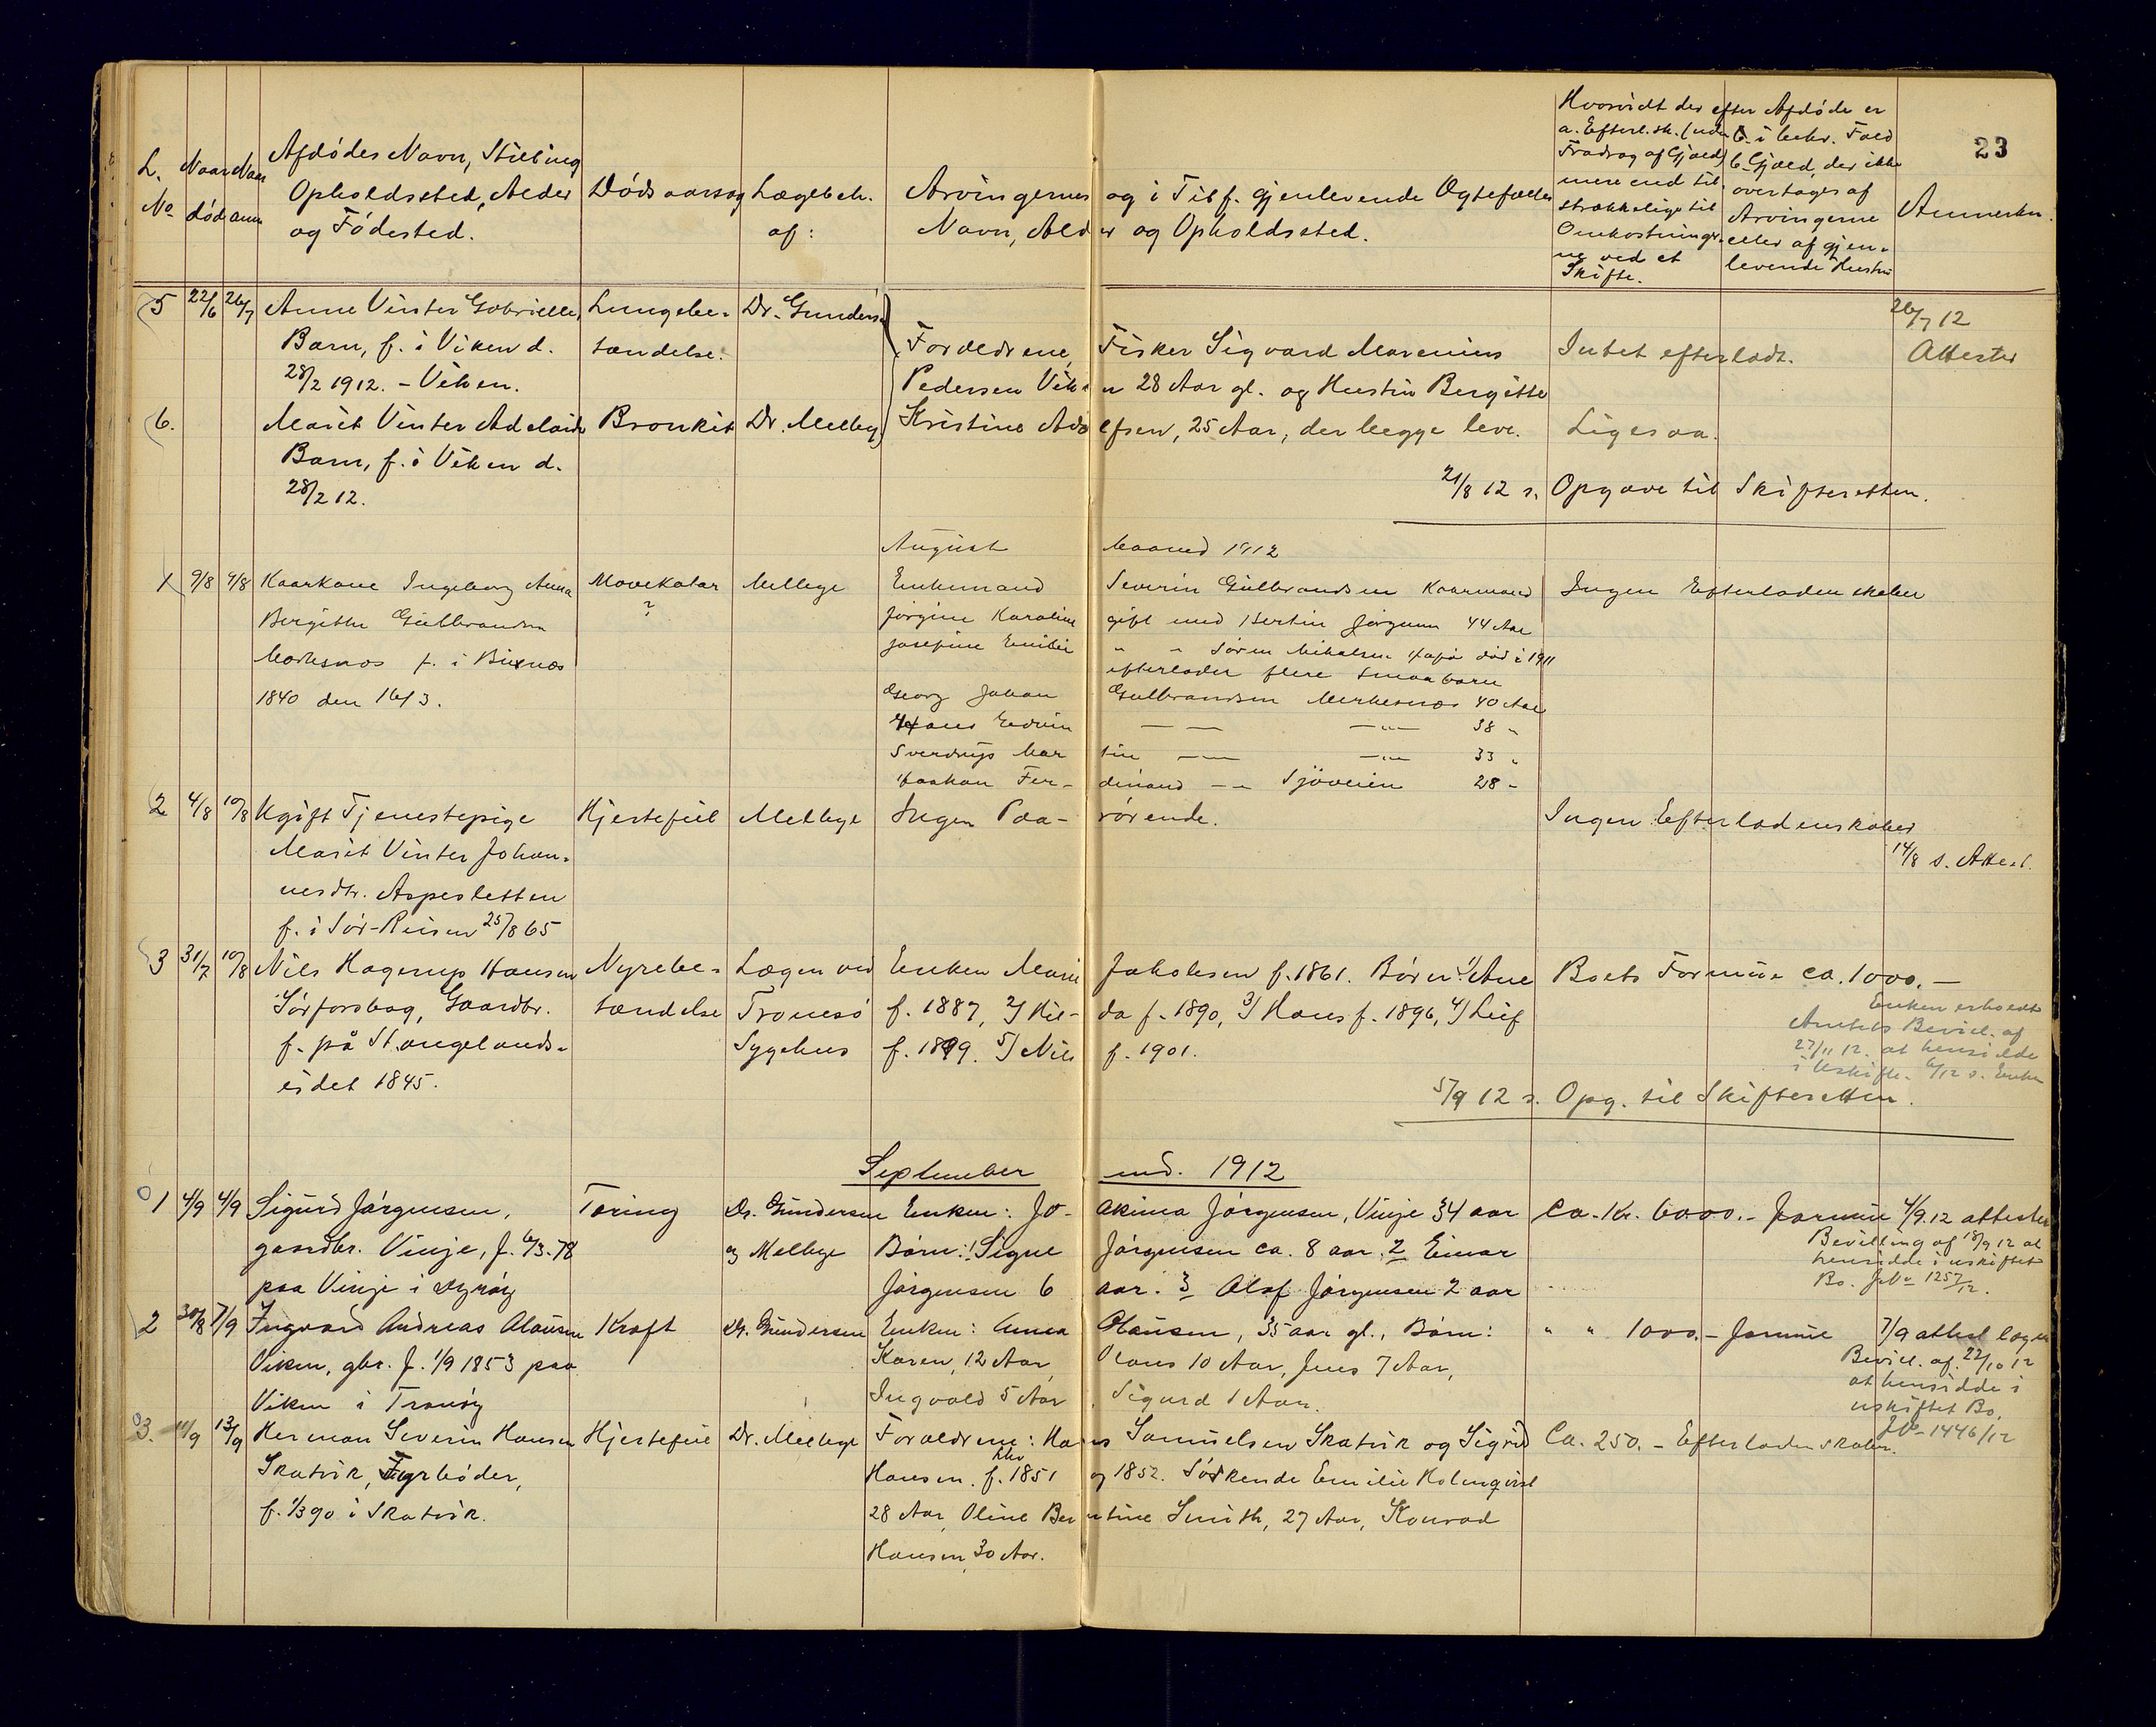 23
L. No
Naar død
Naar anm
Afdødes Navn, Stilling
Opholdssted, Alder
og Fødested.
Dødsaarsag
Lægebeh. af:
Arvingernes og i Tilf. gjenlevende Ægtefælles
Navn, Alder og Opholdssted.
Hvorvidt der efter Afdøde er
a. Efterl.sk. (uden
Fradrag af Gjæld)
mere end til-
strækkelige til
Omkostninger-
ne ved et
Skifte.
b. i bekr. Fald
Gjæld, der ikke
overtages af
Arvingerne
eller af gjen-
levende Hustru
Anmerkn.
5 22/6 26/7 Anne Vinter Gabrielle, Lungebe- Dr. Gunders.
Barn, f. i Viken d. tændelse.
28/2 1912. - Viken.
Forældrene, Fisker Sigvard Marenius
Pedersen Viken 28 Aar gl. og Hustru Bergitte
Kristine Adolfsen, 25 Aar, der begge leve.
Intet efterladt.
26/7 12
Attester
6. Marit Vinter Adelaide Bronkit Dr. Melbye Ligesaa.
Barn, f. i Viken d.
28/2 12.
21/8 12 s. Opgave til Skifteretten.
August Maaned 1912
1 9/8 9/8 Kaarkone Ingeborg Anna Mavekatar Melbye Enkemand Severin Gulbrandsen Kaarmand Ingen Efterladenskaber
Bergitte Gulbrandsen ? Jørgine Karoline gift med Bertin Jørgensen 44 Aar
f. i Bixnes Josefine Emilie " " Søren Mikalsen død i 1911
1840 den 16/3. efterlader flere Smaabørn
Georg Johan Gulbrandsen 40 Aar
Hans Edvin — — 38 "
Sverdrup Martin — — 33 "
Haakon Ferdinand — Sjøveien 28 "
2 4/8 10/8 Ugift Tjenestepige Hjertefeil Melbye Ingen Paarørende. Ingen Efterladenskaber
Marit Vinter Johan- 14/8 s. Attest.
nesdtr. Aspesletten
f. i Sør-Reisen 25/8 65
3 31/7 10/8 Nils Hagerup Hansen Nyrebe- Lægen ved Enken Marie Jakobsen f. 1861. Børn: 1/ Ane Boets Formue ca. 1000.—
Sørforsbag, Gaardbr. tændelse Tromsø f. 1887, 2/ Hilda f. 1890, 3/ Hans f. 1896, 4/ Leif
f. på Stangelands- Sygehus f. 1899. 5/ Nils f. 1901.
eidet 1845.
Enken erholdt
Amtets Bevil. af
27/11 12. at hensidde
i Uskifte. 6/12 s. Enken
5/9 12 s. Opg. til Skifteretten.
September md. 1912
1 4/9 4/9 Sigurd Jørgensen, Tæring Dr. Gundersen Enken: Joakima Jørgensen, Vinje 34 aar Ca. Kr. 6000.- Formue 4/9.12 attester
gaardbr. Vinje, f. 6/3.78 og Melbye Børn: 1 Signe Jørgensen ca. 8 aar. 2 Einar
paa Vinje i Dyrøy Jørgensen 6 aar. 3 Olaf Jørgensen 2 aar
Bevilling af 18/9 12 at
hensidde i uskiftet
Bo. JNo 1257/12.
2 30/8 7/9 Ingvard Andreas Olausen Kræft Dr. Gundersen Enken: Anna Olausen, 35 aar gl., Børn: " " 1000.- formue 7/9 attest
Viken, gbr. f. 1/9 1853 paa Karen, 12 Aar, Olaus 10 Aar, Jens 7 Aar,
Viken i Tranøy Ingvald 5 Aar, Sigurd 1 Aar.
Bevil. af. 22/10 12
at hensidde i
uskiftet Bo.
JNo 1446/12
3. 11/9 13/9 Herman Severin Hansen Hjertefeil Dr. Melbye Forældrene: Hans Samuelsen Skatvik og Sigrid Ca. 250.- Efterladenskaber.
Skatvik, Fyrbøder, Hansen. f. hhv 1851 og 1852. Søskende Emilie Holmqvist
f. 1/3 90 i Skatvik. 28 Aar, Oline Berntine Smith, 27 Aar, Konrad
Hansen, 30 Aar.